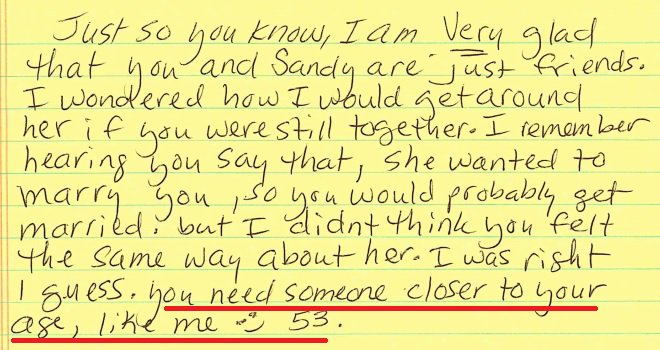 Just so you know, I am Very glad
that you and Sandy are just friends.
I wondered how I would get around
her if you were still together. I remember
hearing you say that, she wanted to
marry you, so you would probably get
married. but I didnt think you felt
the same way about her. I was right
I guess. you need someone closer to your
age, like me 53.